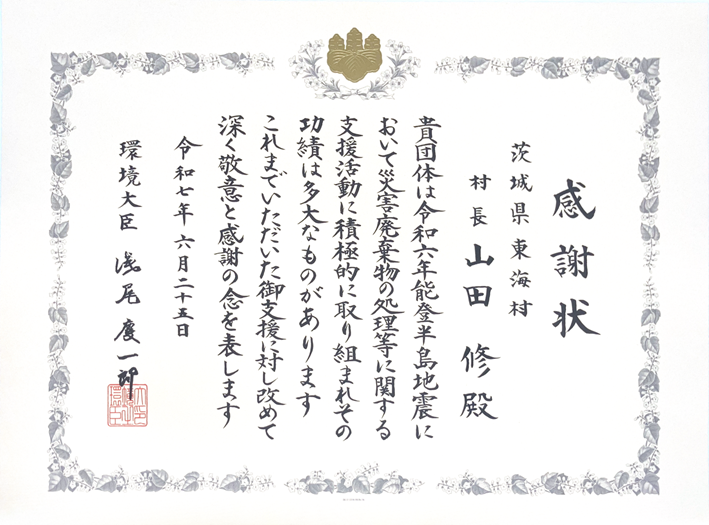 感謝状
茨城県東海村
村長 山田 修 殿
貴団体は令和六年能登半島地震に
おいて災害廃棄物の処理等に関する
支援活動に積極的に取り組まれその
功績は多大なものがあります
これまでいただいた御支援に対し改めて
深く敬意と感謝の念を表します
令和七年六月二十五日
環境大臣 浅尾慶一郎